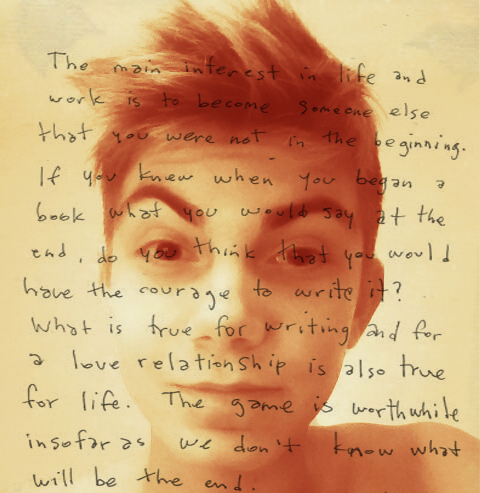 The main interest in life and
work is to become someone else
that you were not in the beginning.
If you knew when you began a
book what you would say at the
end, do you think that you would
have the courage to write it?
What is true for writing and for
a love relationship is also true
for life. The game is worthwhile
insofar as we don't know what
will be the end.